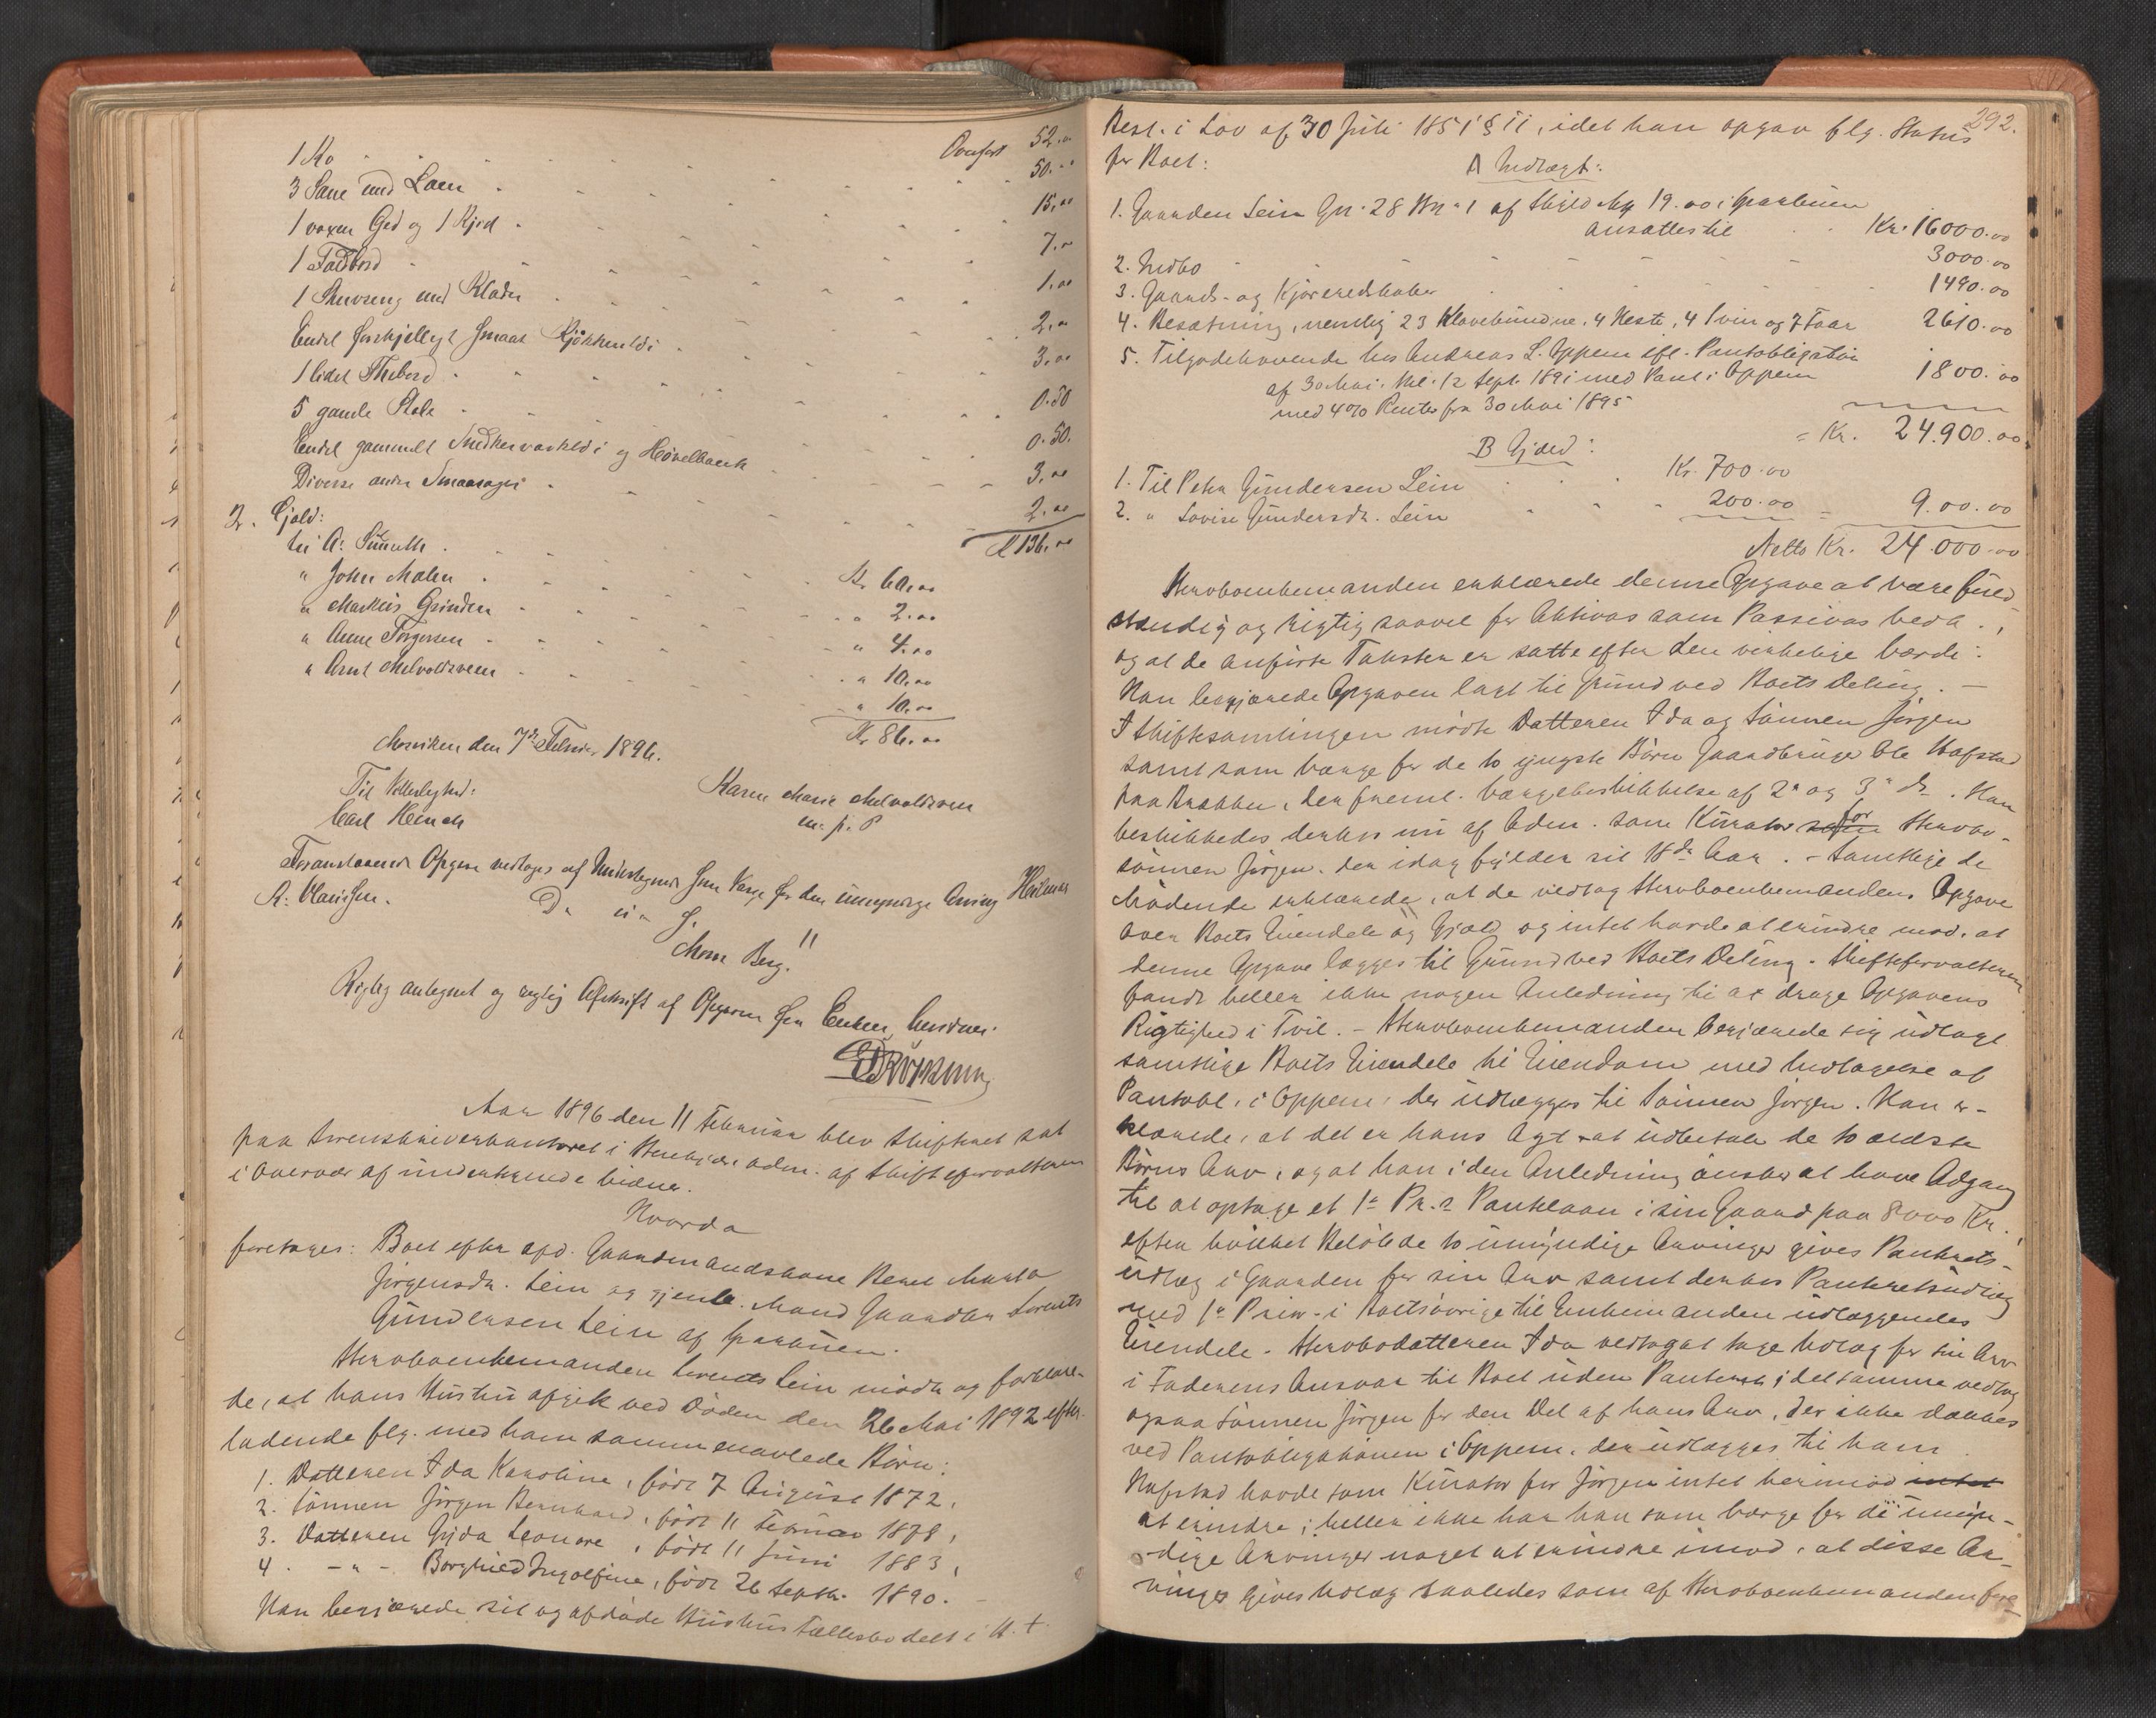 Overført 52.00
1 Ko 50.00
3 Saue med Lam 15.00
1 voxen Ged og 1 Kjed 7.00
1 Fadbord 1.00
1 Skuvseng med Klæder 2.00
Endel forskjelligt smaat Kjøkkentøi 3.00
1 lidet Thebord 0.50
5 gamle Stole 0.50.
Endel gammelt Snedkerværktøi og Høvelbænk 3.00
Diverse andre Smaasager 2.00
Kr 136.00
2. Gjæld:
til A. Kr 60.00
" John Malen " 2.00
" Markus Grinden " 4.00
" Anne Torgersen " 10.00
" Arnt Melvoldsveen " 10.00
Kr 86.00
Morviken den 7de Februar 1896.
Til Vitterlighed:
Karen Marie Melvoldsveen
Carl Heinch
m. p. P
Foranstaaende Opgave vedtages af Undertegnede som Værge for den umyndige Arving Hilmar
A. Clausen.
D. u. s.
Morse Berg.
Rigtig antegnet og rigtig Afskrift af Opgaven fra Enken, bevidner
Aar 1896 den 11 Februar blev Skifteret sat
paa Sorenskriverkontoret i Stenkjær adm. af Skifteforvalteren
i Overvær af undertegnede Vidner.
Hvorda
foretages: Boet efter afd. Gaardmandskone Beret Marta
Jørgensdr. Lein og gjenlev. Mand Gaardbr Lorents
Gundersen Lein af Sparbuen.
Stervboenkemanden Lorents Lein mødte og forklare-
de, at hans Hustru afgik ved Døden den 26 Mai 1892 efter-
ladende flg. med ham sammenavlede Børn:
1. Datteren Ida Karoline, født 7 August 1872,
2. Sønnen Jørgen Bernhard, født 11 Februar 1878,
3. Datteren Gjda Leonore, født 11 Juni 1883,
4. - " - Borghild Ingolfine, født 26 Septbr. 1890.
Han begjærede sit og afdøde Hustrus Fællesbo delt i H. t.
292.
Best. i Lov af 30 Juli 1851 § 11, idet han opgav flg. Status
for Boet:
A Indtægt:
1. Gaarden Lein Gn. 28 Bn. 1 af Skyld Mk 19.00 i Sparbuen
ansættes til Kr. 16000.00
2. Indbo 3000.00
3. Gaards- og Kjøreredskaber 1490.00
4. Besætning, nemlig 23 Klovebundne, 4 Heste, 4 Svin og 7 Faar 2610.00
5. Tilgodehavende hos Andreas L. Oppem ifl. Pantobligation
af 30 Mai, thl. 12 Sept. 1891 med Pant i Oppem 1800.00
med 4% Renter fra 30 Mai 1895
= Kr. 24.900.00
B Gjæld:
1. Til Peter Gundersen Lein Kr. 700.00
2. " Lovise Gundersdr. Lein 200.00 = 9.00.00
Netto Kr. 24.000.00
Stervboenkemanden erklærede denne Opgave at være fuld-
stændig og rigtig saavel for Aktivas som Passivas Vedk.,
og at de anførte Takster er satte efter den virkelige Værdi.
Han begjærede Opgaven lagt til Grund ved Boets Deling. —
I Skiftesamlingen mødte Datteren Ida og Sønnen Jørgen
samt som Værge for de to yngste Børn Gaardbruger Ole Hafstad
paa Brakken, der freml. Værgebeskikkelse af 2. og 3. ds. Han
beskikkedes derhos nu af Adm. som Kurator som for Stervbo-
sønnen Jørgen, der idag fylder sit 18de Aar. - Samtlige de
Mødende erklærede, at de vedtog Stervboenkemandens Opgave
over Boets Eiendele og Gjæld og intet havde at erindre mod, at
denne Opgave lægges til Grund ved Boets Deling. Skifteforvalteren
fandt heller ikke nogen Anledning til at drage Opgavens
Rigtighed i Tvil. - Stervboenkemanden begjærede sig udlagt
samtlige Boets Eiendele til Eiendom med Undtagelse af
Pantobl. i Oppem, der udlægges til Sønnen Jørgen. Han er-
klærede, at det er hans Agt at udbetale de to ældste
Børns Arv, og at han i den Anledning ønsker at have Adgang
til at optage et 1ste Pr.s Pantelaan i sin Gaard paa 8000 Kr.,
efter hvilket Beløb de to umyndige Arvinger gives Panterets-
udlæg i Gaarden for sin Arv samt derhos Panteretsudlæg
med 1ste Prior. i Boets øvrige til Enkemanden udlæggendes
Eiendele. Stervbodatteren Ida vedtog at tage Udlæg for sin Arv
i Faderens Ansvar til Boet uden Panteret; det samme vedtog
ogsaa Sønnen Jørgen for den Del af hans Arv, der ikke dækkes
ved Pantobligationen i Oppem, der udlægges til ham.
Hafstad havde som Kurator for Jørgen intet herimod intet
at erindre; heller ikke har han som Værge for de umyn-
dige Arvinger noget at erindre imod, at disse Ar-
vinger gives Udlæg saaledes som af Stervboenkemanden fore-